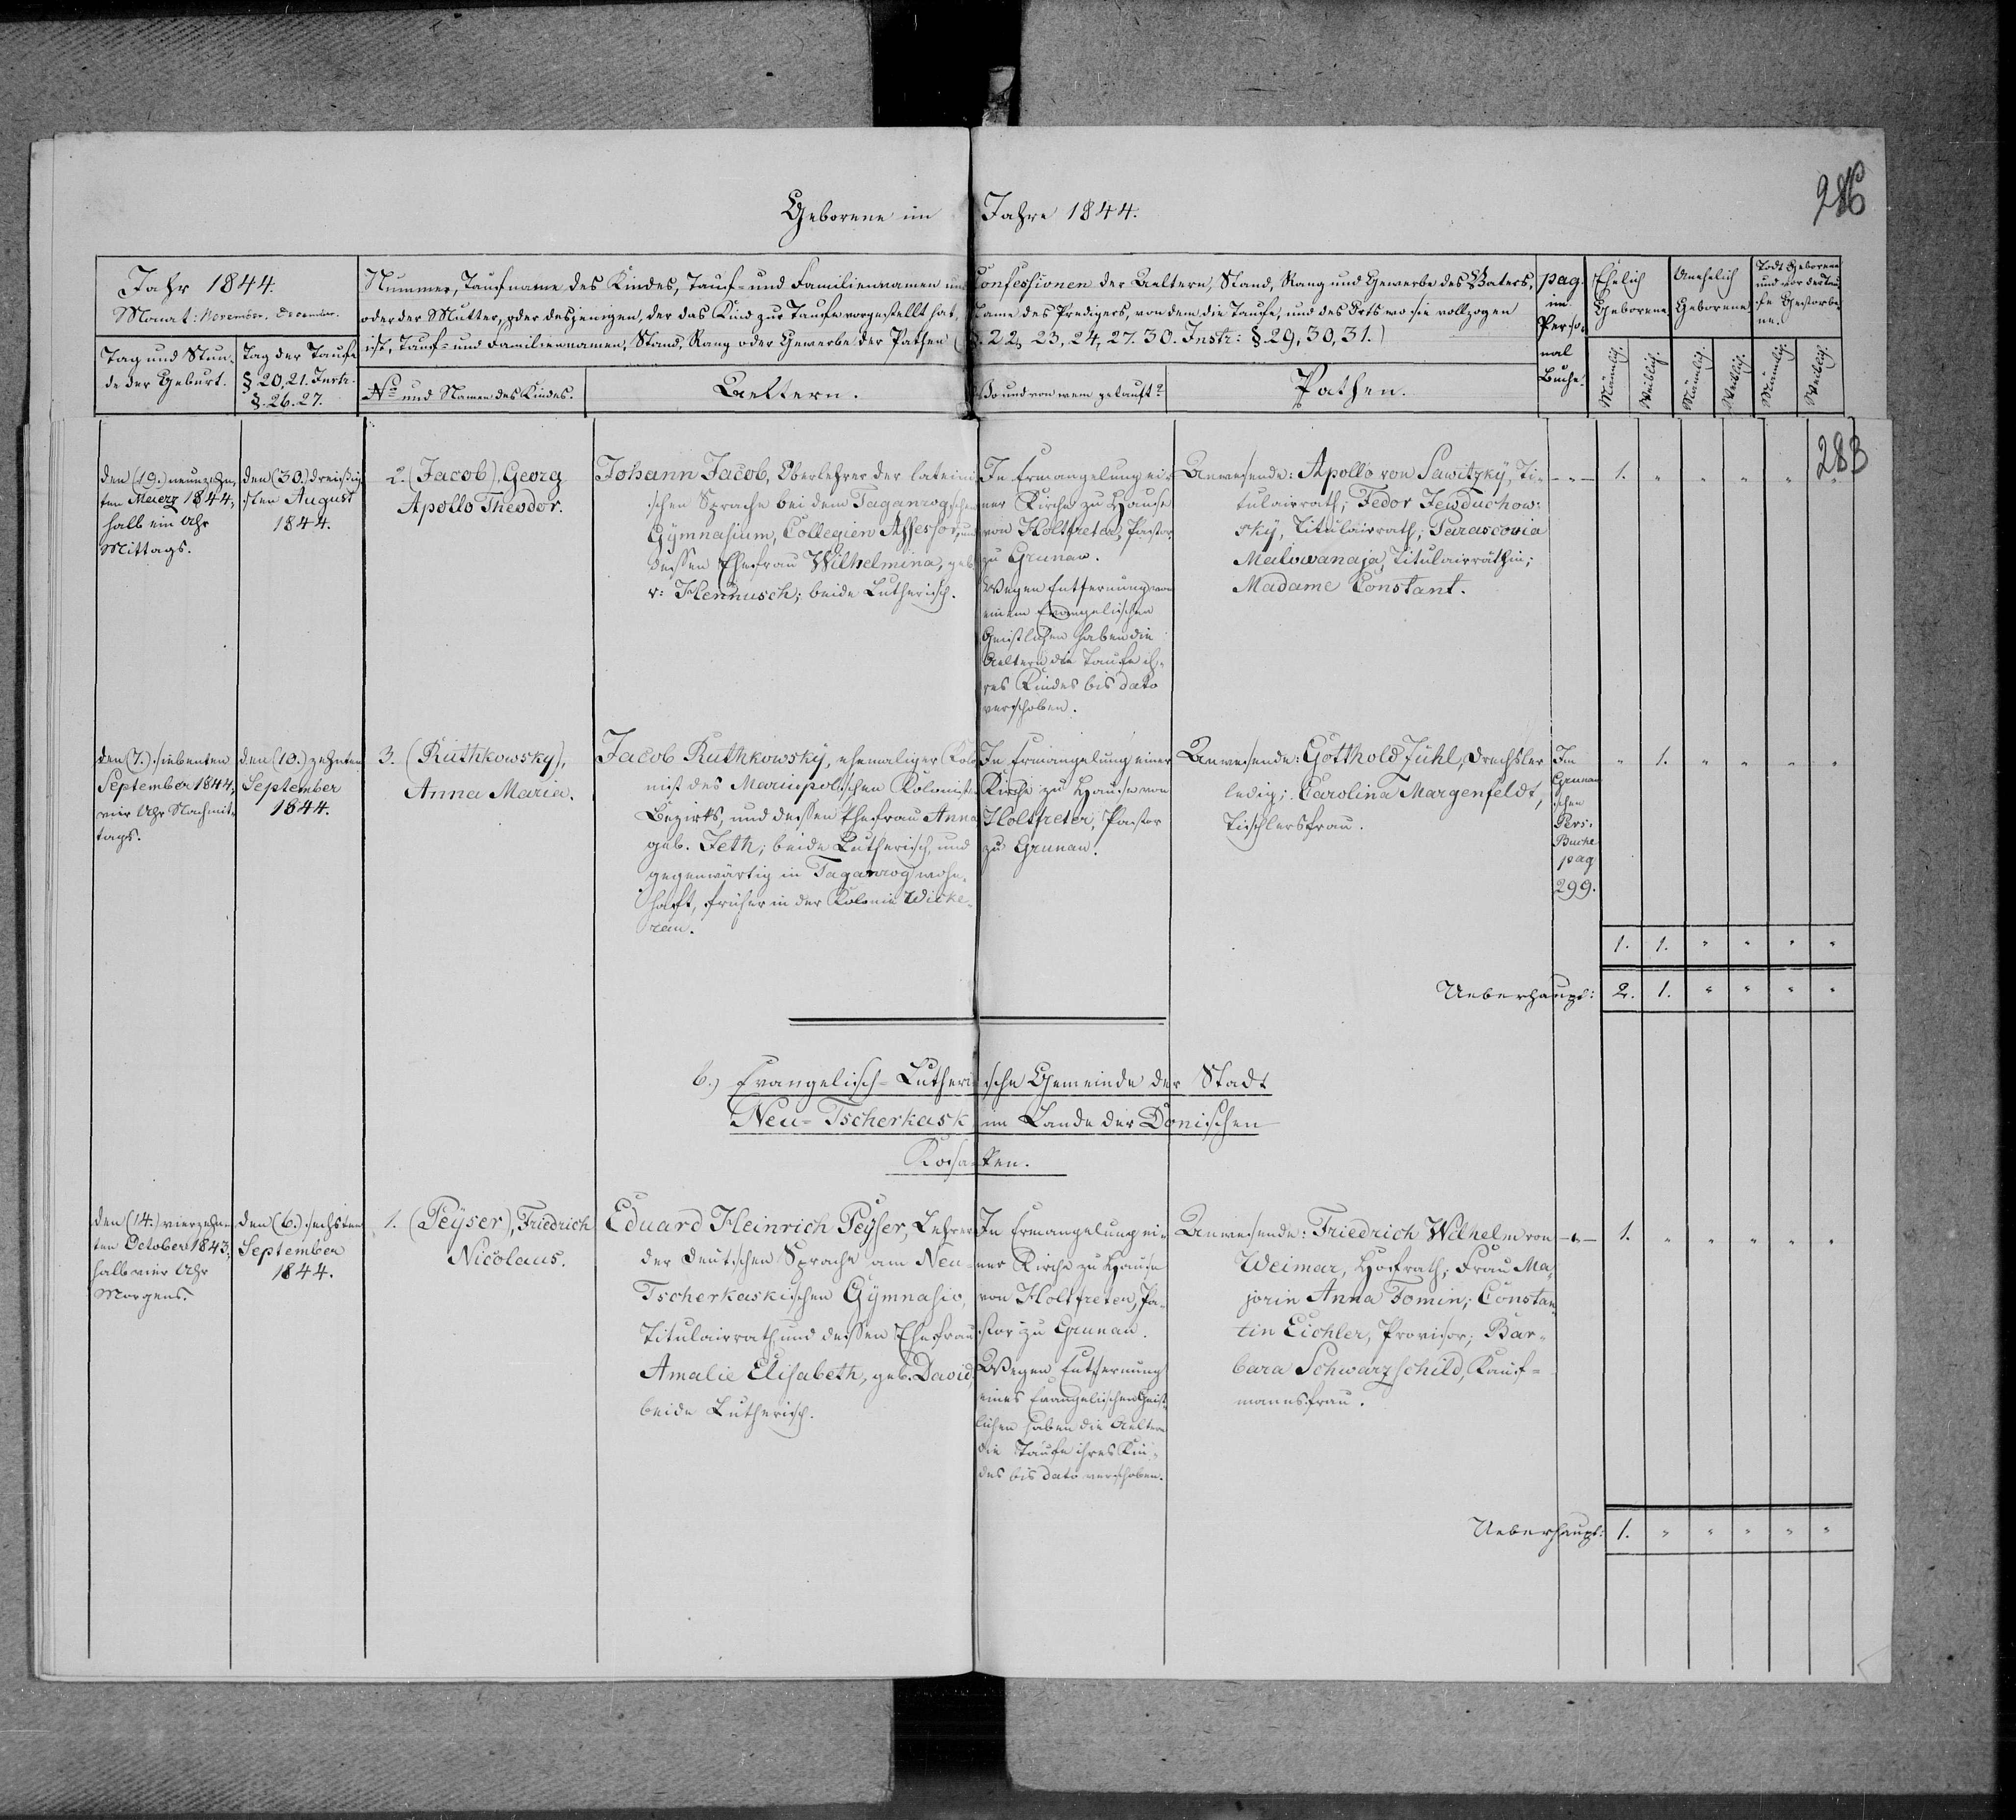 286
Geborene im Jahre 1844.
Jahr 1844.
Monat: November. December.
Tag und Stun-
de der Geburt.
Tag der Taufe
§ 20, 21. Instr.
§. 26. 27.
Nummer, Taufname des Kindes, Tauf- und Familiennamen und Confessionen der Aeltern, Stand, Rang und Gewerbe des Vaters,
oder der Mutter, oder desjenigen, der das Kind zur Taufe vorgestellt hat, Name des Predigers, von dem die Taufe, und des Orts wo sie vollzogen
ist, Tauf- und Familiennamen, Stand, Rang oder Gewerbe der Pathen (§. 22, 23, 24, 27. 30. Instr: §. 29, 30, 31.)
No und Namen des Kindes.
Aeltern.
Wo und von wem getauft?
Pathen.
pag.
im
Perso-
nal
Buche.
Ehelich
Geborene.
Unehelich
Geborene.
Todt Geborene
und vor der Tau-
fe Gestorbe-
ne.
Männlich.
Weiblich.
Männlich.
Weiblich.
Männlich.
Weiblich.
283
den (19.) neunzehn-
ten Maerz 1844,
halb ein Uhr
Mittags.
den (30.) dreißig-
sten August
1844.
2. (Jacob), Georg
Apollo Theodor.
Johann Jacob, Oberlehrer der lateini-
schen Sprache bei dem Taganrogschen
Gymnasium, Collegien Assessor, und
dessen Ehefrau Wilhelmina, geb.
v: Hennusch; beide Lutherisch.
In Ermangelung ei-
ner Kirche zu Hause
von Holtfreter, Pastor
zu Grunau.
Wegen Entfernung von
einem Evangelischen
Geistlichen haben die
Aeltern die Taufe ih-
res Kindes bis dato
verschoben.
Anwesende: Apollo von Sawitzky, Ti-
tulairrath; Fedor Jewduchow-
sky, Titulairrath; Parascovia
Malowanaja, Titulairräthin;
Madame Constant.
— " — 1. " " " " "
den (7.) siebenten
September 1844,
vier Uhr Nachmit-
tags.
den (10.) zehnten
September
1844.
3. (Ruthkowsky),
Anna Maria.
Jacob Ruthkowsky, ehemaliger Kolo-
nist des Mariupolischen Kolonisten
Bezirks, und dessen Ehefrau Anna
geb. Jeth; beide Lutherisch, und
gegenwärtig in Taganrog wohn-
haft, früher in der Kolonie Wicke-
rau.
In Ermangelung einer
Kirche zu Hause von
Holtfreter, Pastor
zu Grunau.
Anwesende: Gotthold Juhl, Drechsler
ledig; Carolina Margenfeldt,
Tischlersfrau.
Im
Grunau
schen
Pers.
Buche
pag
299.
" 1. " " " "
1. 1. " " " "
Ueberhaupt: 2. 1. " " " "
b.) Evangelisch-Lutherische Gemeinde der Stadt
Neu-Tscherkask im Lande der Donischen
Kosacken.
den (14.) vierzehn-
ten October 1843,
halb vier Uhr
Morgens.
den (6.) sechsten
September
1844.
1. (Peyser), Friedrich
Nicolaus.
Eduard Heinrich Peyser, Lehrer
der deutschen Sprache am Neu-
Tscherkaskischen Gymnasio,
Titulairrath und dessen Ehefrau
Amalie Elisabeth, geb. David,
beide Lutherisch.
In Ermangelung ei-
ner Kirche zu Hause
von Holtfreter, Pa-
stor zu Grunau.
Wegen Entfernung
eines Evangelischen Geist-
lichen haben die Aeltern
die Taufe ihres Kin-
des bis dato verschoben.
Anwesende: Friedrich Wilhelm von
Weimar, Hofrath; Frau Ma-
jorin Anna Fomin; Constan-
tin Eichler, Provisor; Bar-
bara Schwarzschild, Kauf-
mannsfrau.
— " — 1. " " " " "
Ueberhaupt: 1. " " " " "